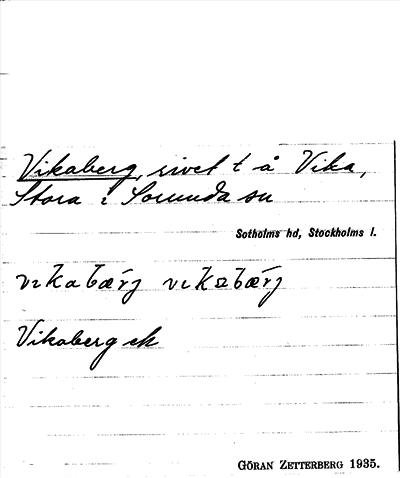 Vikaberg, rivet t å Vika,
Stora i Sorunda sn
Sotholms hd, Stockholms l.
vɩkabærj vɩkabærj
Vikaberg ek
GÖRAN ZETTERBERG 1935.